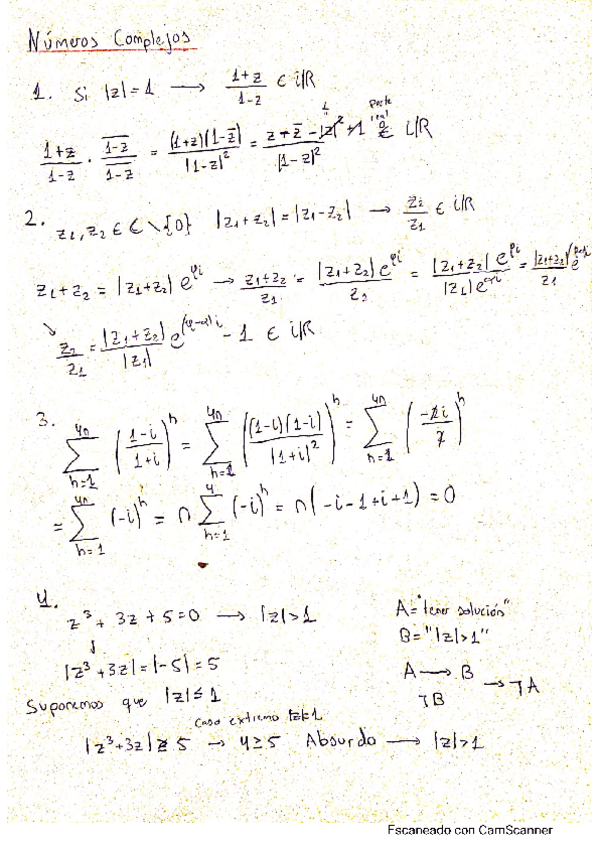 Números Complejos
1. Si |z|=1 → (1+z)/(1-z) ∈ iℝ
(1+z)/(1-z) · \overline{1-z}/\overline{1-z} = (1+z)(1-\bar{z})/|1-z|² = (z-\bar{z}-|z|²+1)/|1-z|² ∈ iℝ
2. z₁,z₂ ∈ ℂ∖{0} |z₁+z₂|=|z₁-z₂| → z₂/z₁ ∈ iℝ
z₁+z₂ = |z₁+z₂| e^{φi} → (z₁+z₂)/z₁ = |z₁+z₂|e^{φi}/z₁ = |z₁+z₂| e^{φi}/|z₁|e^{αi} =
↘ z₂/z₁ = |z₁+z₂|/|z₁| e^{(φ-α)i} - 1 ∈ iℝ
3. ∑_{h=1}^{4n} ((1-i)/(1+i))^h = ∑_{h=1}^{4n} ((1-i)(1-i)/|1+i|²)^h = ∑_{h=1}^{4n} (-2i/2)^h
= ∑_{h=1}^{4n} (-i)^h = n ∑_{h=1}^{4} (-i)^h = n(-i-1+i+1) = 0
4. z³ + 3z + 5 = 0 → |z|>1
A="tener solución"
B="|z|>1"
|z³+3z|=|-5|=5
A → B
¬B → ¬A
Suponemos que |z|≤1
caso extremo |z|=1
|z³+3z| ≥ 5 → 4≥5 Absurdo → |z|>1
Escaneado con CamScanner